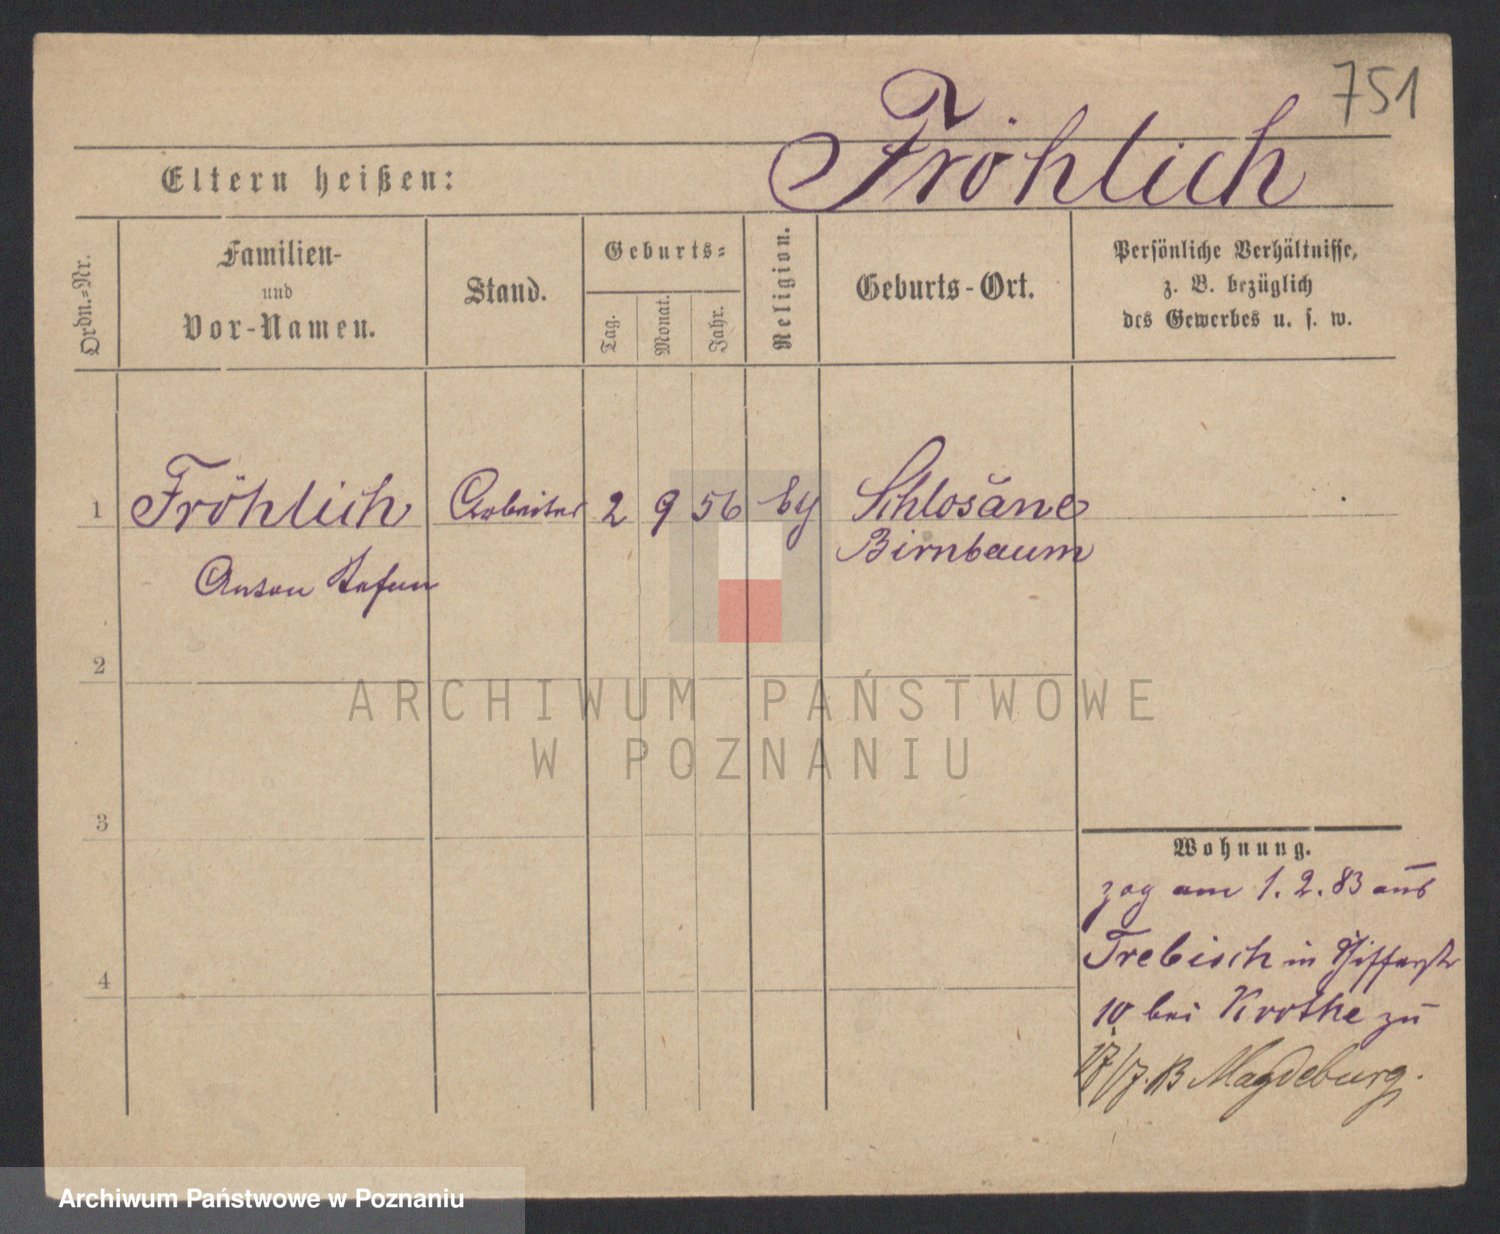 751
Fröhlich
Eltern heißen:
Ordn.=Nr.
Familien-
und
Vor-Namen.
Stand.
Geburts=
Tag.
Monat.
Jahr.
Religion.
Geburts-Ort.
Persönliche Verhältnisse,
z. B. bezüglich
des Gewerbes u. s. w.
1 Fröhlich Arbeiter 2 9 56
Birnbaum
Anton
2
3
4
Wohnung.
zog am 1. 2. 83 aus
Trebisch in
10 bei Krothe zu
Magdeburg.
ARCHIWUM PAŃSTWOWE
W POZNANIU
Archiwum Państwowe w Poznaniu